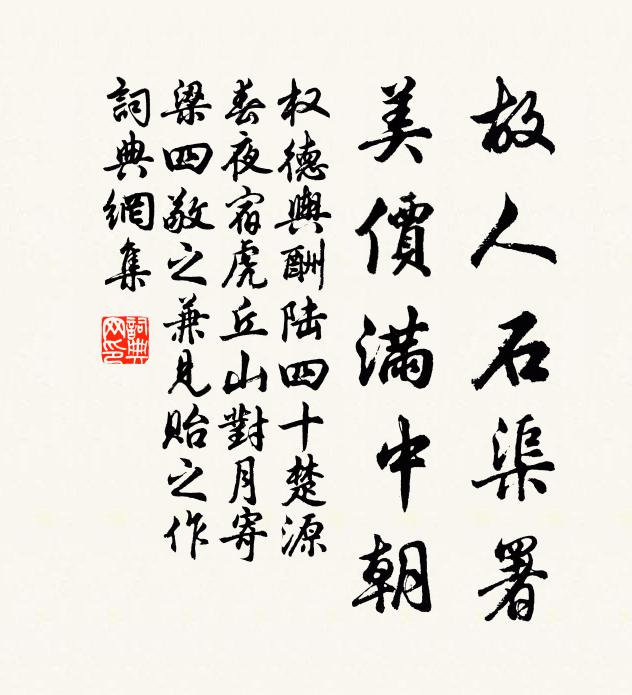 故人石渠署
美價滿中朝
权德輿酬陆四十楚源
春夜宿虎丘山對月寄
梁四敬之兼見貽之作
詞典網集
詞典
网印